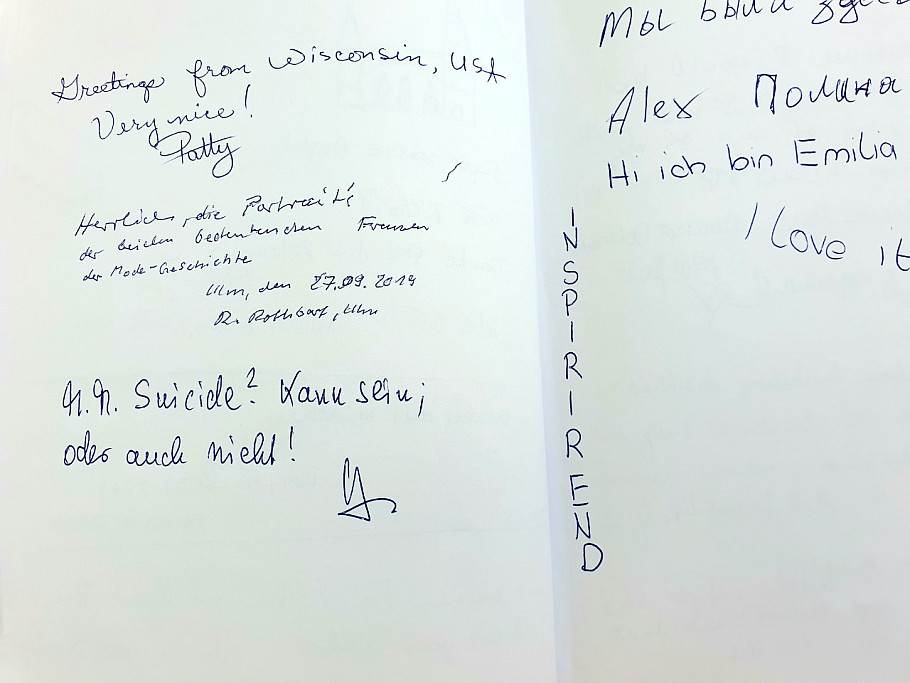 Greetings from Wisconsin, USA
Very nice!
Patty
Herrlich, die Portraits
der beiden bedeutenden Frauen
der Mode-Geschichte
Ulm, den 27.09.2019
R. Rothbart, Ulm
Suicide? Kann sein;
oder auch nicht!
Мы были
Alex Полина
Hi ich bin Emilia
I love it
INSPIRIREND